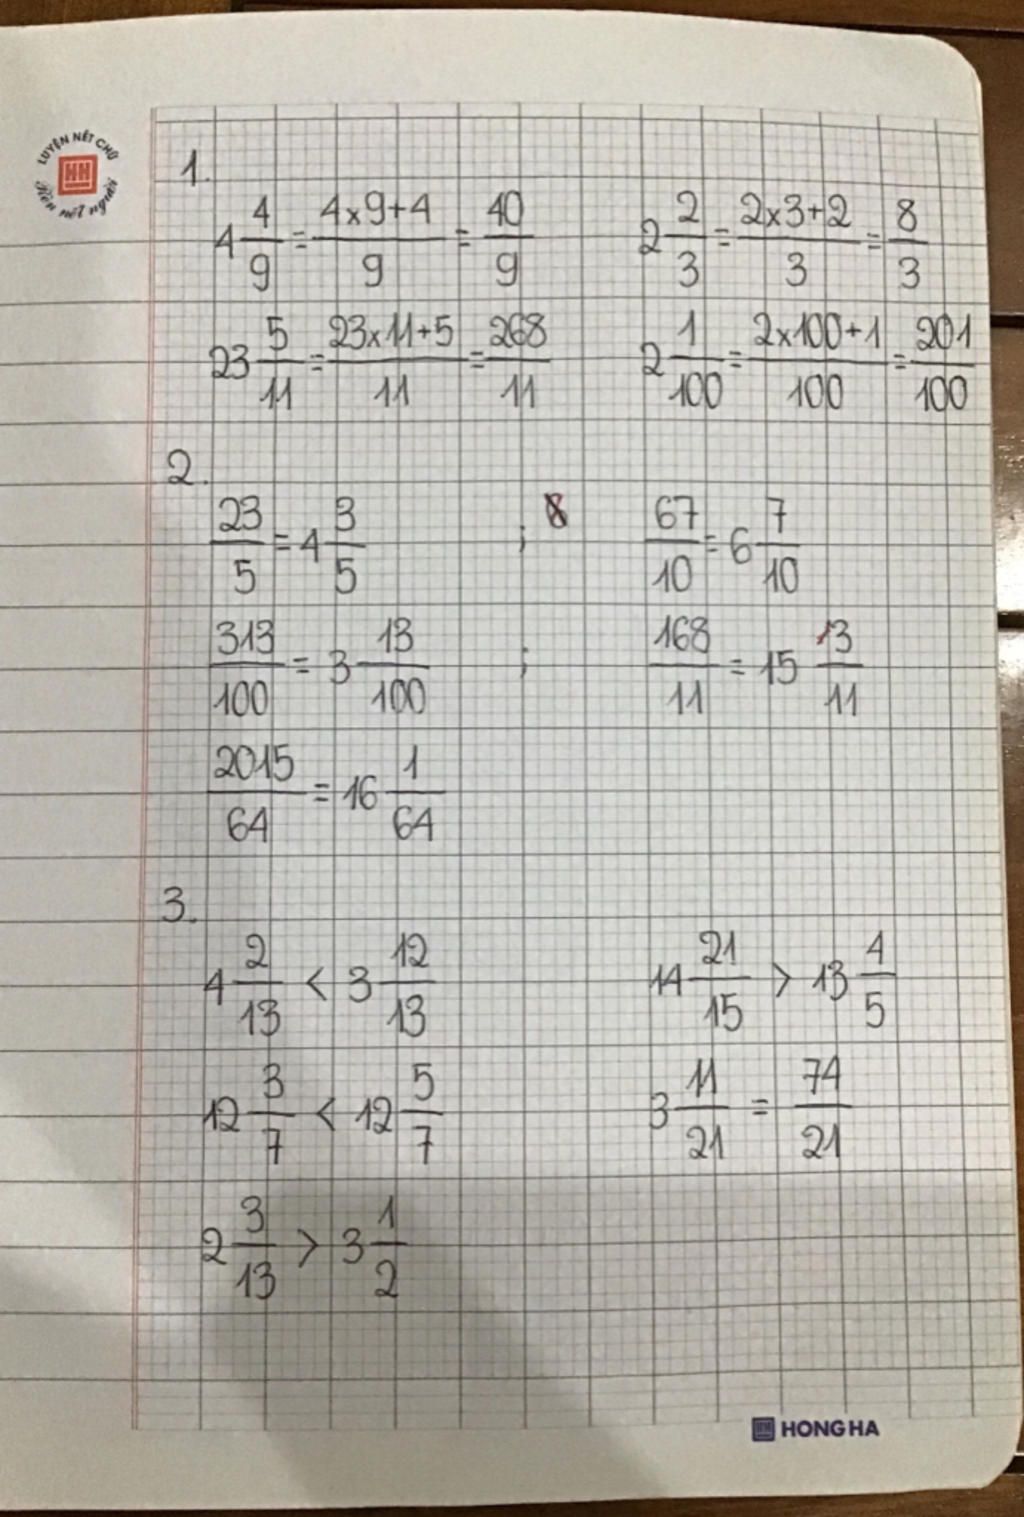 LUYỆN NÉT CHỮ
HH
Rèn nết người
1.
4 4/9 = (4x9+4)/9 = 40/9    2 2/3 = (2x3+2)/3 = 8/3
23 5/11 = (23x11+5)/11 = 268/11    2 1/100 = (2x100+1)/100 = 201/100
2.
23/5 = 4 3/5 ;    67/10 = 6 7/10
313/100 = 3 13/100 ;    168/11 = 15 13/11
2015/64 = 16 1/64
3.
4 2/13 < 3 12/13    14 21/15 > 13 4/5
12 3/7 < 12 5/7    3 11/21 = 74/21
2 3/13 > 3 1/2
HONG HA